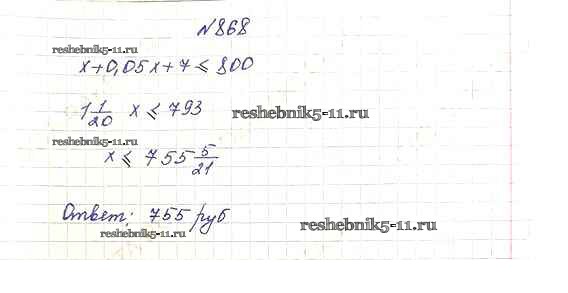 №868
reshebnik5-11.ru
x+0,05x+7⩽800
1 1/20 x ⩽ 793
reshebnik5-11.ru
reshebnik5-11.ru
x ⩽ 755 5/21
Ответ: 755 руб
reshebnik5-11.ru
reshebnik5-11.ru